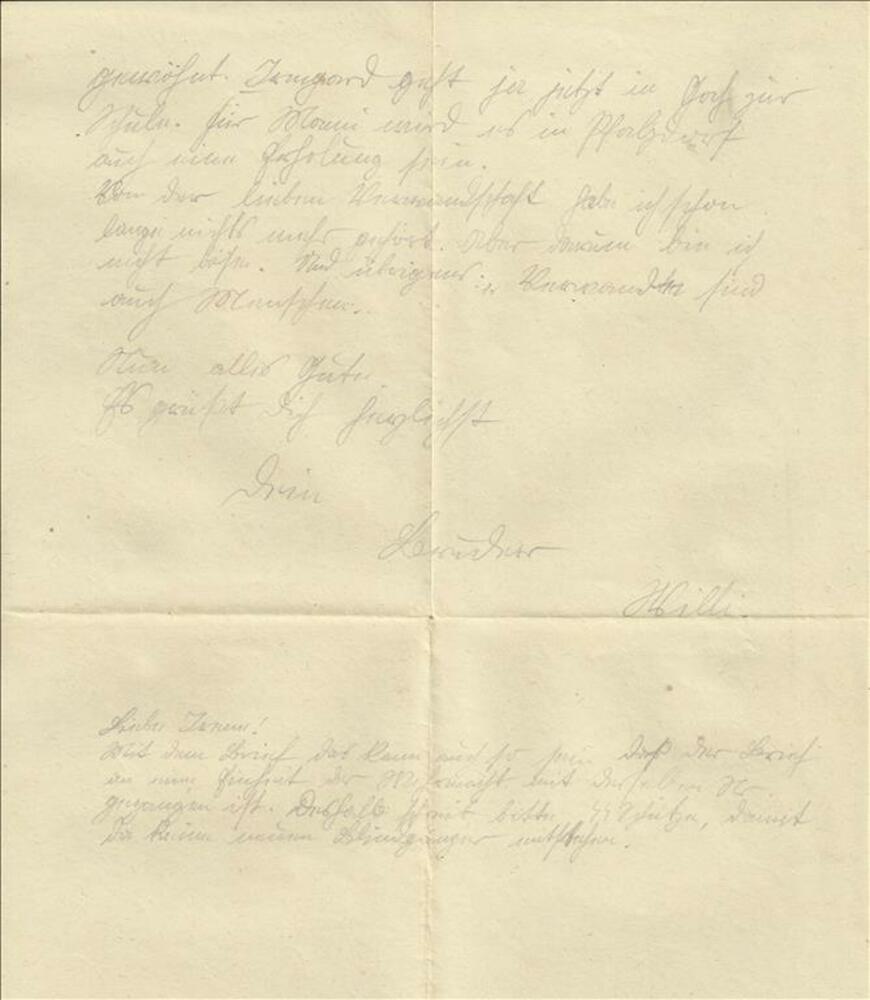 gewöhnt. Irmgard geht ja jetzt in Goch zur
Schule. Für Mami wird es in Pfalzdorf
auch eine Erholung sein.
Von der lieben Verwandtschaft habe ich schon
lange nichts mehr gehört. Aber darum bin ich
nicht böse. Und übrigens: „Verwandte sind
auch Menschen.
Nun alles Gute
Es grüßt Dich herzlichst
Dein
Bruder
Willi.
Liebe !
Mit dem Brief das kann auch so sein daß der Brief
an eine Einheit der Wehrmacht mit derselben Nr.
gegangen ist. Deshalb schreib bitte SS Schütze, damit
da keine neuen Blindgänger entstehen.